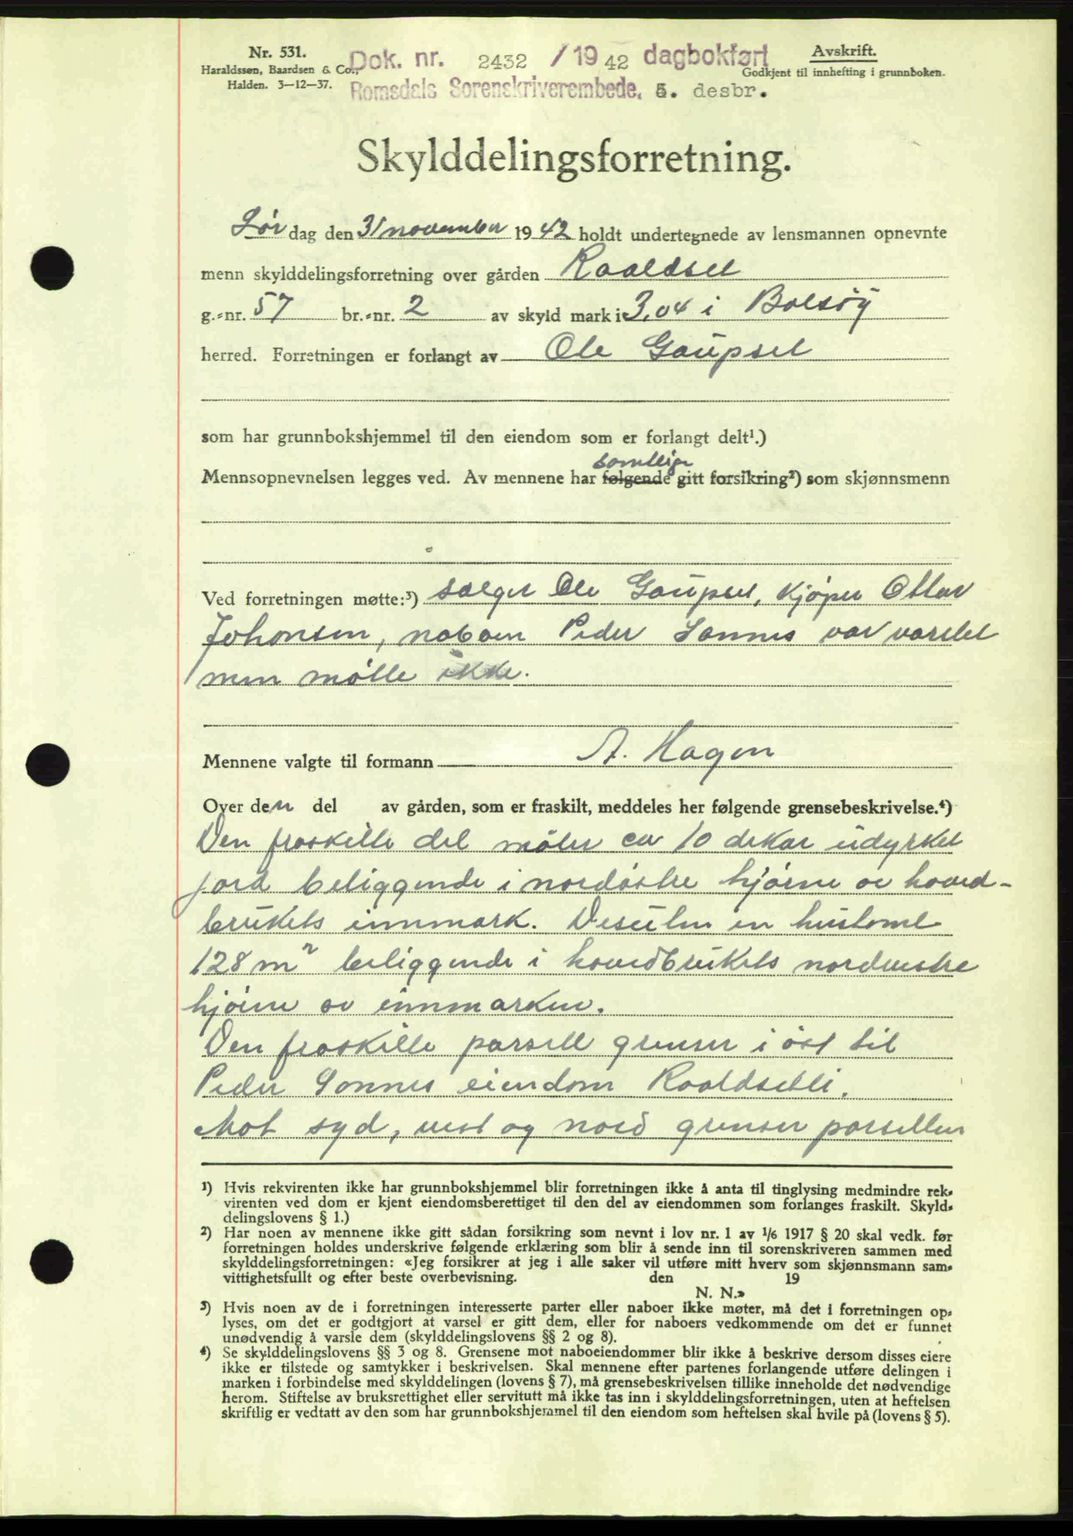 Nr. 531.
Haraldssen, Baardsen & Co.,
Halden. 3—12—37.
Dok. nr. 2432 /19 42 dagbokført
Romsdals Sorenskriverembede. 5. desbr.
Avskrift.
Godkjent til innhefting i grunnboken.
Skylddelingsforretning.
Lør dag den 31 november 1942 holdt undertegnede av lensmannen opnevnte
menn skylddelingsforretning over gården Raaldset
g.-nr. 57 br.-nr. 2 av skyld mark i 3,04 i Bolsøy
herred. Forretningen er forlangt av Ole Gaupset
som har grunnbokshjemmel til den eiendom som er forlangt delt¹.)
samtlige
Mennsopnevnelsen legges ved. Av mennene har følgende gitt forsikring²) som skjønnsmenn
Ved forretningen møtte:³) sælger Ole Gaupset, kjøper Ottar
Johansen, naboen Peder Sannes var varslet
men møtte ikke.
Mennene valgte til formann A. Hagen
Over den del av gården, som er fraskilt, meddeles her følgende grensebeskrivelse.⁴)
Den fraskilte del måler ca 10 dekar udyrket
jord beliggende i nordøstre hjørne av hoved-
brukets innmark. Desuten en hustomt
128 m² beliggende i hovedbrukets nordvestre
hjørne av innmarken.
Den fraskilte parsell grenser i øst til
Peder Sannes eiendom Raaldsetli.
Mot syd, vest og nord grenser parsellen
¹) Hvis rekvirenten ikke har grunnbokshjemmel blir forretningen ikke å anta til tinglysing medmindre rek-
virenten ved dom er kjent eiendomsberettiget til den del av eiendommen som forlanges fraskilt. Skyld-
delingslovens § 1.)
²) Har noen av mennene ikke gitt sådan forsikring som nevnt i lov nr. 1 av 1/6 1917 § 20 skal vedk. før
forretningen holdes underskrive følgende erklæring som blir å sende inn til sorenskriveren sammen med
skylddelingsforretningen: «Jeg forsikrer at jeg i alle saker vil utføre mitt hverv som skjønnsmann sam-
vittighetsfullt og efter beste overbevisning. den 19
N. N.»
³) Hvis noen av de i forretningen interesserte parter eller naboer ikke møter, må det i forretningen op-
lyses, om det er godtgjort at varsel er gitt dem, eller for naboers vedkommende om det er funnet
unødvendig å varsle dem (skylddelingslovens §§ 2 og 8).
⁴) Se skylddelingslovens §§ 3 og 8. Grensene mot naboeiendommer blir ikke å beskrive dersom disses eiere
ikke er tilstede og samtykker i beskrivelsen. Skal mennene efter partenes forlangende utføre delingen i
marken i forbindelse med skylddelingen (lovens § 7), må grensebeskrivelsen tillike inneholde det nødvendige
herom. Stiftelse av bruksrettighet eller servitutt må ikke tas inn i skylddelingsforretningen, uten at heftelsen
skriftlig er vedtatt av den som har grunnbokshjemmel til den eiendom som heftelsen skal hvile på (lovens § 5).